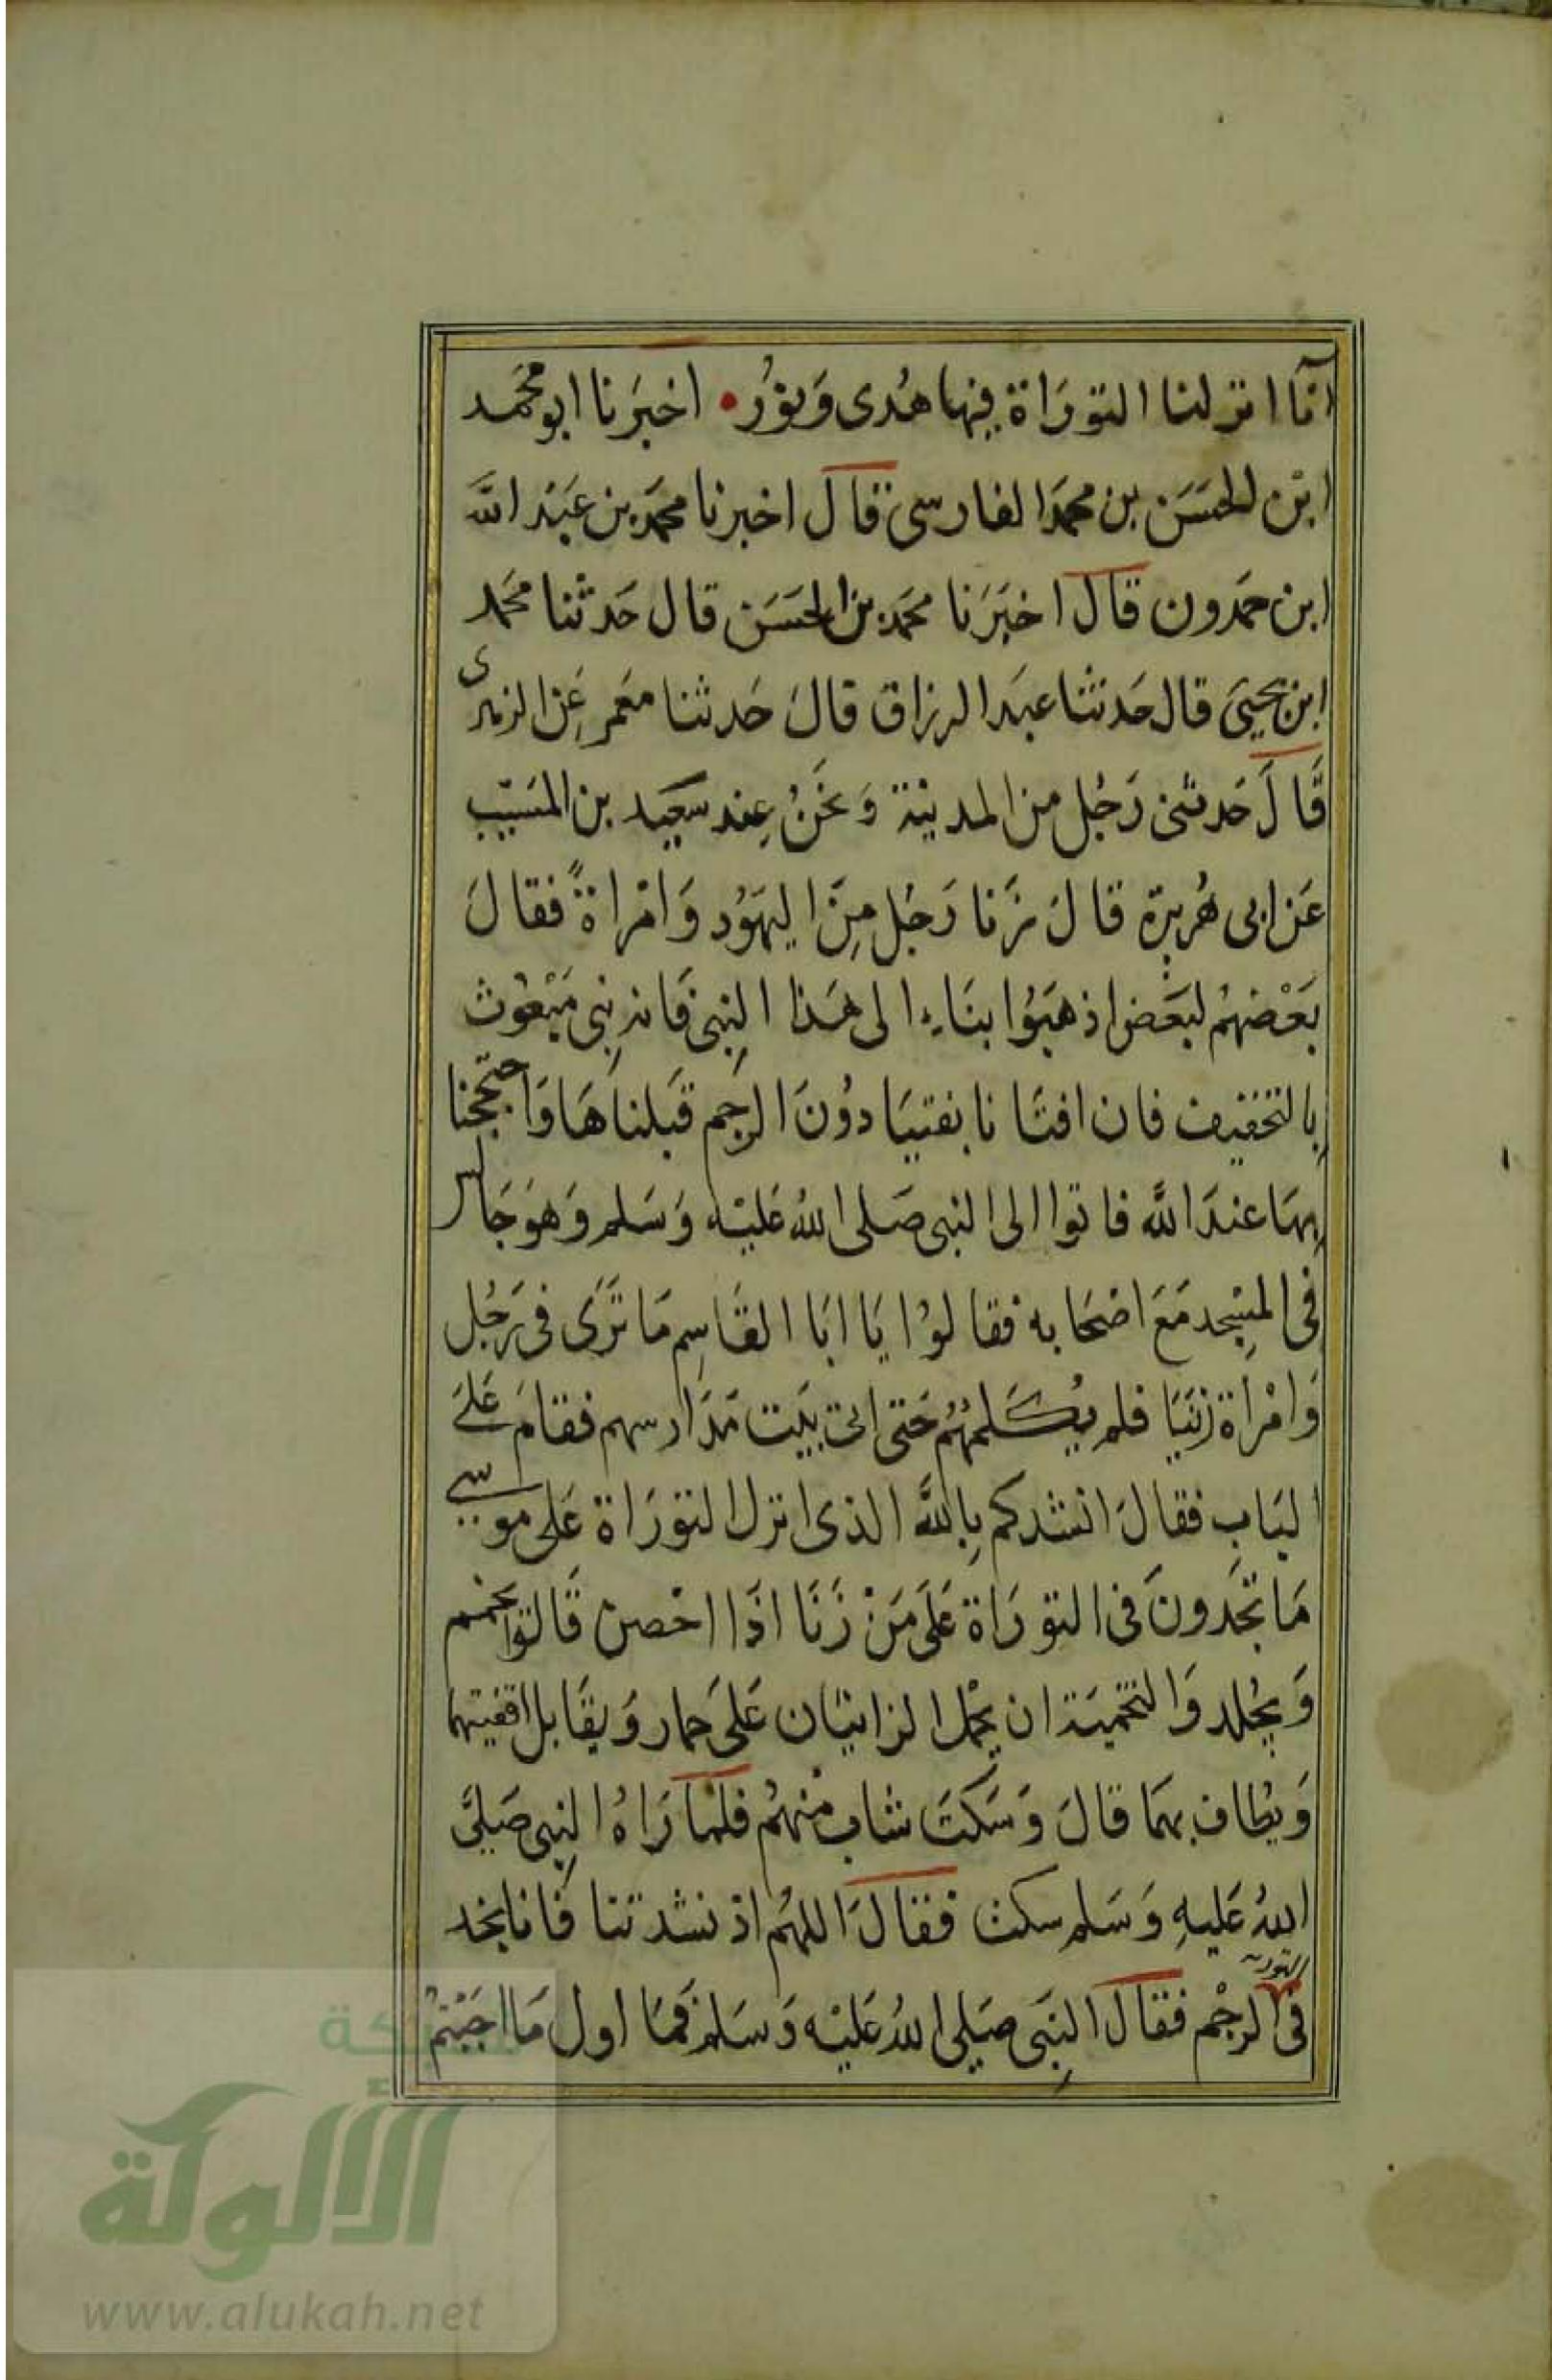 انّآ انزلنا التورَاة فِيها هُدى وَنوُرُ • اخبرَنا ابو محمَد
ابْن الحسَن بن محمدَ الفارسى قال اخبرنا محمدَ بن عَبَد اللَّه
ابن حمَدون قال اخبَرَنا محمَد بن الحسَن قال حَدثنا محمَد
ابن يحيىَ قال حَدثنا عبَد الرزاق قالَ حَدثنا معَمر عَن الزهرى
قَالَ حَدثنى رَجُل من المدينة وَنحَنُ عِند سَعيد بن المسَيّب
عَن ابى هُريرة قالَ زنَا رَجُل مِنَ اليهَوُد وَامْراةً فقالَ
بَعْضهُم لبعَض اذهَبُوا بنَا الى هَذا النِبى فَانه نبِى مَبْعوُث
بِالتخفيف فان افتَانا بفتيَا دوُنَ الرجم قَبلناهَا وَاحتججنا
بِهَا عندَ اللَّه فاتوا الى النبى صَلى اللهُ عَليْه وَسَلم وَهوَ جَالس
فى المسِْجد مَعَ اصْحَابه فقالوُا يَا ابَا القَاسِم مَا ترَى فى رَجُل
وَامْرأة زنيَا فلم يُكَلمهُم حَتى اتى بَيت مدَارسهم فقامَ عَلىَ
البَاب فقالَ انشدكم بِاللَّه الذى انزل التورَاة عَلى موسى
مَا تجَدونَ فى التورَاة عَلَى مَنْ زَنَا اذَا احْصن قَالوا يحمم
وَيجُلد وَالتحميَة ان يحْمل الزانيَان عَلىَ حمار وَيقَابل اقفيتهما
وَيطُاف بهمَا قالَ وَسَكتَ شاب منْهُم فلما رَاهُ النبِى صَلىَّ
اللهُ عَليهِ وَسَلم سكت فقالَ اللهُم اذ نشدتنا فَانا نجد
فى التورىة الرجْم فقال النِبَى صَلى اللهُ عَليْه وَسَلم فَمَا اول مَا اجَبْتمْ
شبكة
الألوكة
www.alukah.net